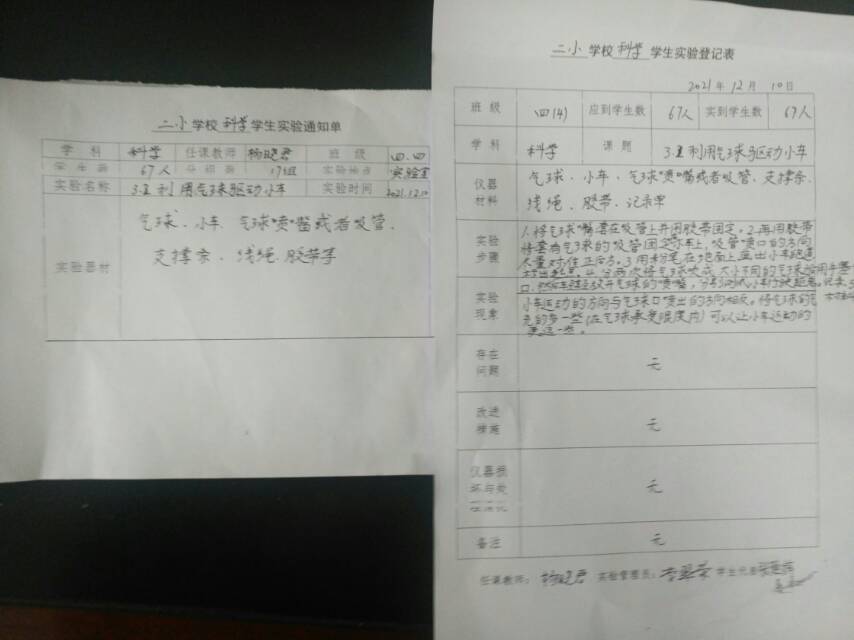 二小学校科学学生实验通知单
学 科 科学 任课教师 杨晓君 班 级 四.四
67人 17组 实验地点 实验室
实验名称 3.2利用气球驱动小车 实验时间 2021.12.10
实验器材
气球、小车、气球喷嘴或者吸管、
支撑条、线绳、胶带等
二小学校科学学生实验登记表
2021年12月10日
班 级 四(4) 应到学生数 67人 实到学生数 67人
学 科 科学 课 题 3.2利用气球驱动小车
仪器材料
气球、小车、气球喷嘴或者吸管、支撑条、
线绳、胶带、记录单
实验步骤
1.将气球嘴套在吸管上并用胶带固定。2.再用胶带
将套有气球的吸管固定在小车上,吸管喷口的方向
尽量对准正后方。3.用粉笔在地面上画出小车跑道
4.分两次将气球吹成大小不同的气球
实验现象
小车运动的方向与气球口喷出的方向相反。将气球的气
充的多一些(在气球承受限度内)可以让小车运动的
更远一些。
存在问题 无
改进措施 无
仪器损坏与处 无
备注 无
任课教师: 杨晓君 实验管理员: 学生代表